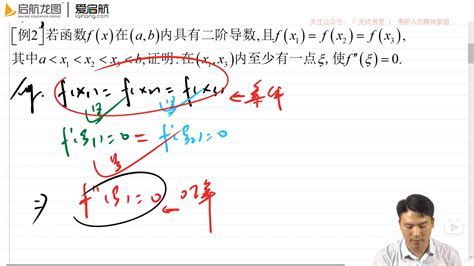 启航龙图 爱启航
iqihang.com
关注公众号: 考研人的精神家园
[例2]若函数f(x)在(a,b)内具有二阶导数,且f(x₁)=f(x₂)=f(x₃),
其中a<x₁<x₂<x₃<b,证明:在(x₁,x₃)内至少有一点ξ,使f″(ξ)=0.
f(x₁)=f(x₂)=f(x₃)
f′(ξ₁)=0=f′(ξ₂)=0
⇒ f″(ξ)=0